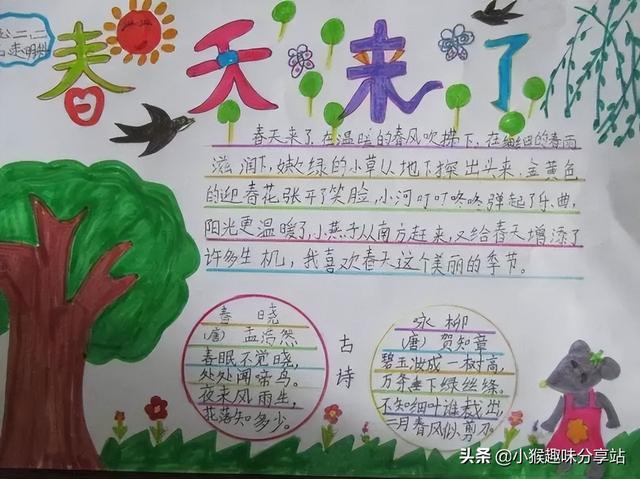 春天来了
春天来了,在温暖的春风吹拂下,在细细的春雨
滋润下,嫩绿的小草从地下探出头来,金黄色
的迎春花张开了笑脸,小河叮叮咚咚弹起了乐曲,
阳光更温暖了,小燕子从南方赶来,又给春天增添了
许多生机,我喜欢春天这个美丽的季节。
春晓
(唐)孟浩然
春眠不觉晓,
处处闻啼鸟。
夜来风雨生,
花落知多少。
古诗
咏柳
(唐)贺知章
碧玉妆成一树高,
万条垂下绿丝绦。
不知细叶谁裁出,
二月春风似剪刀。
头条@小猴趣味分享站